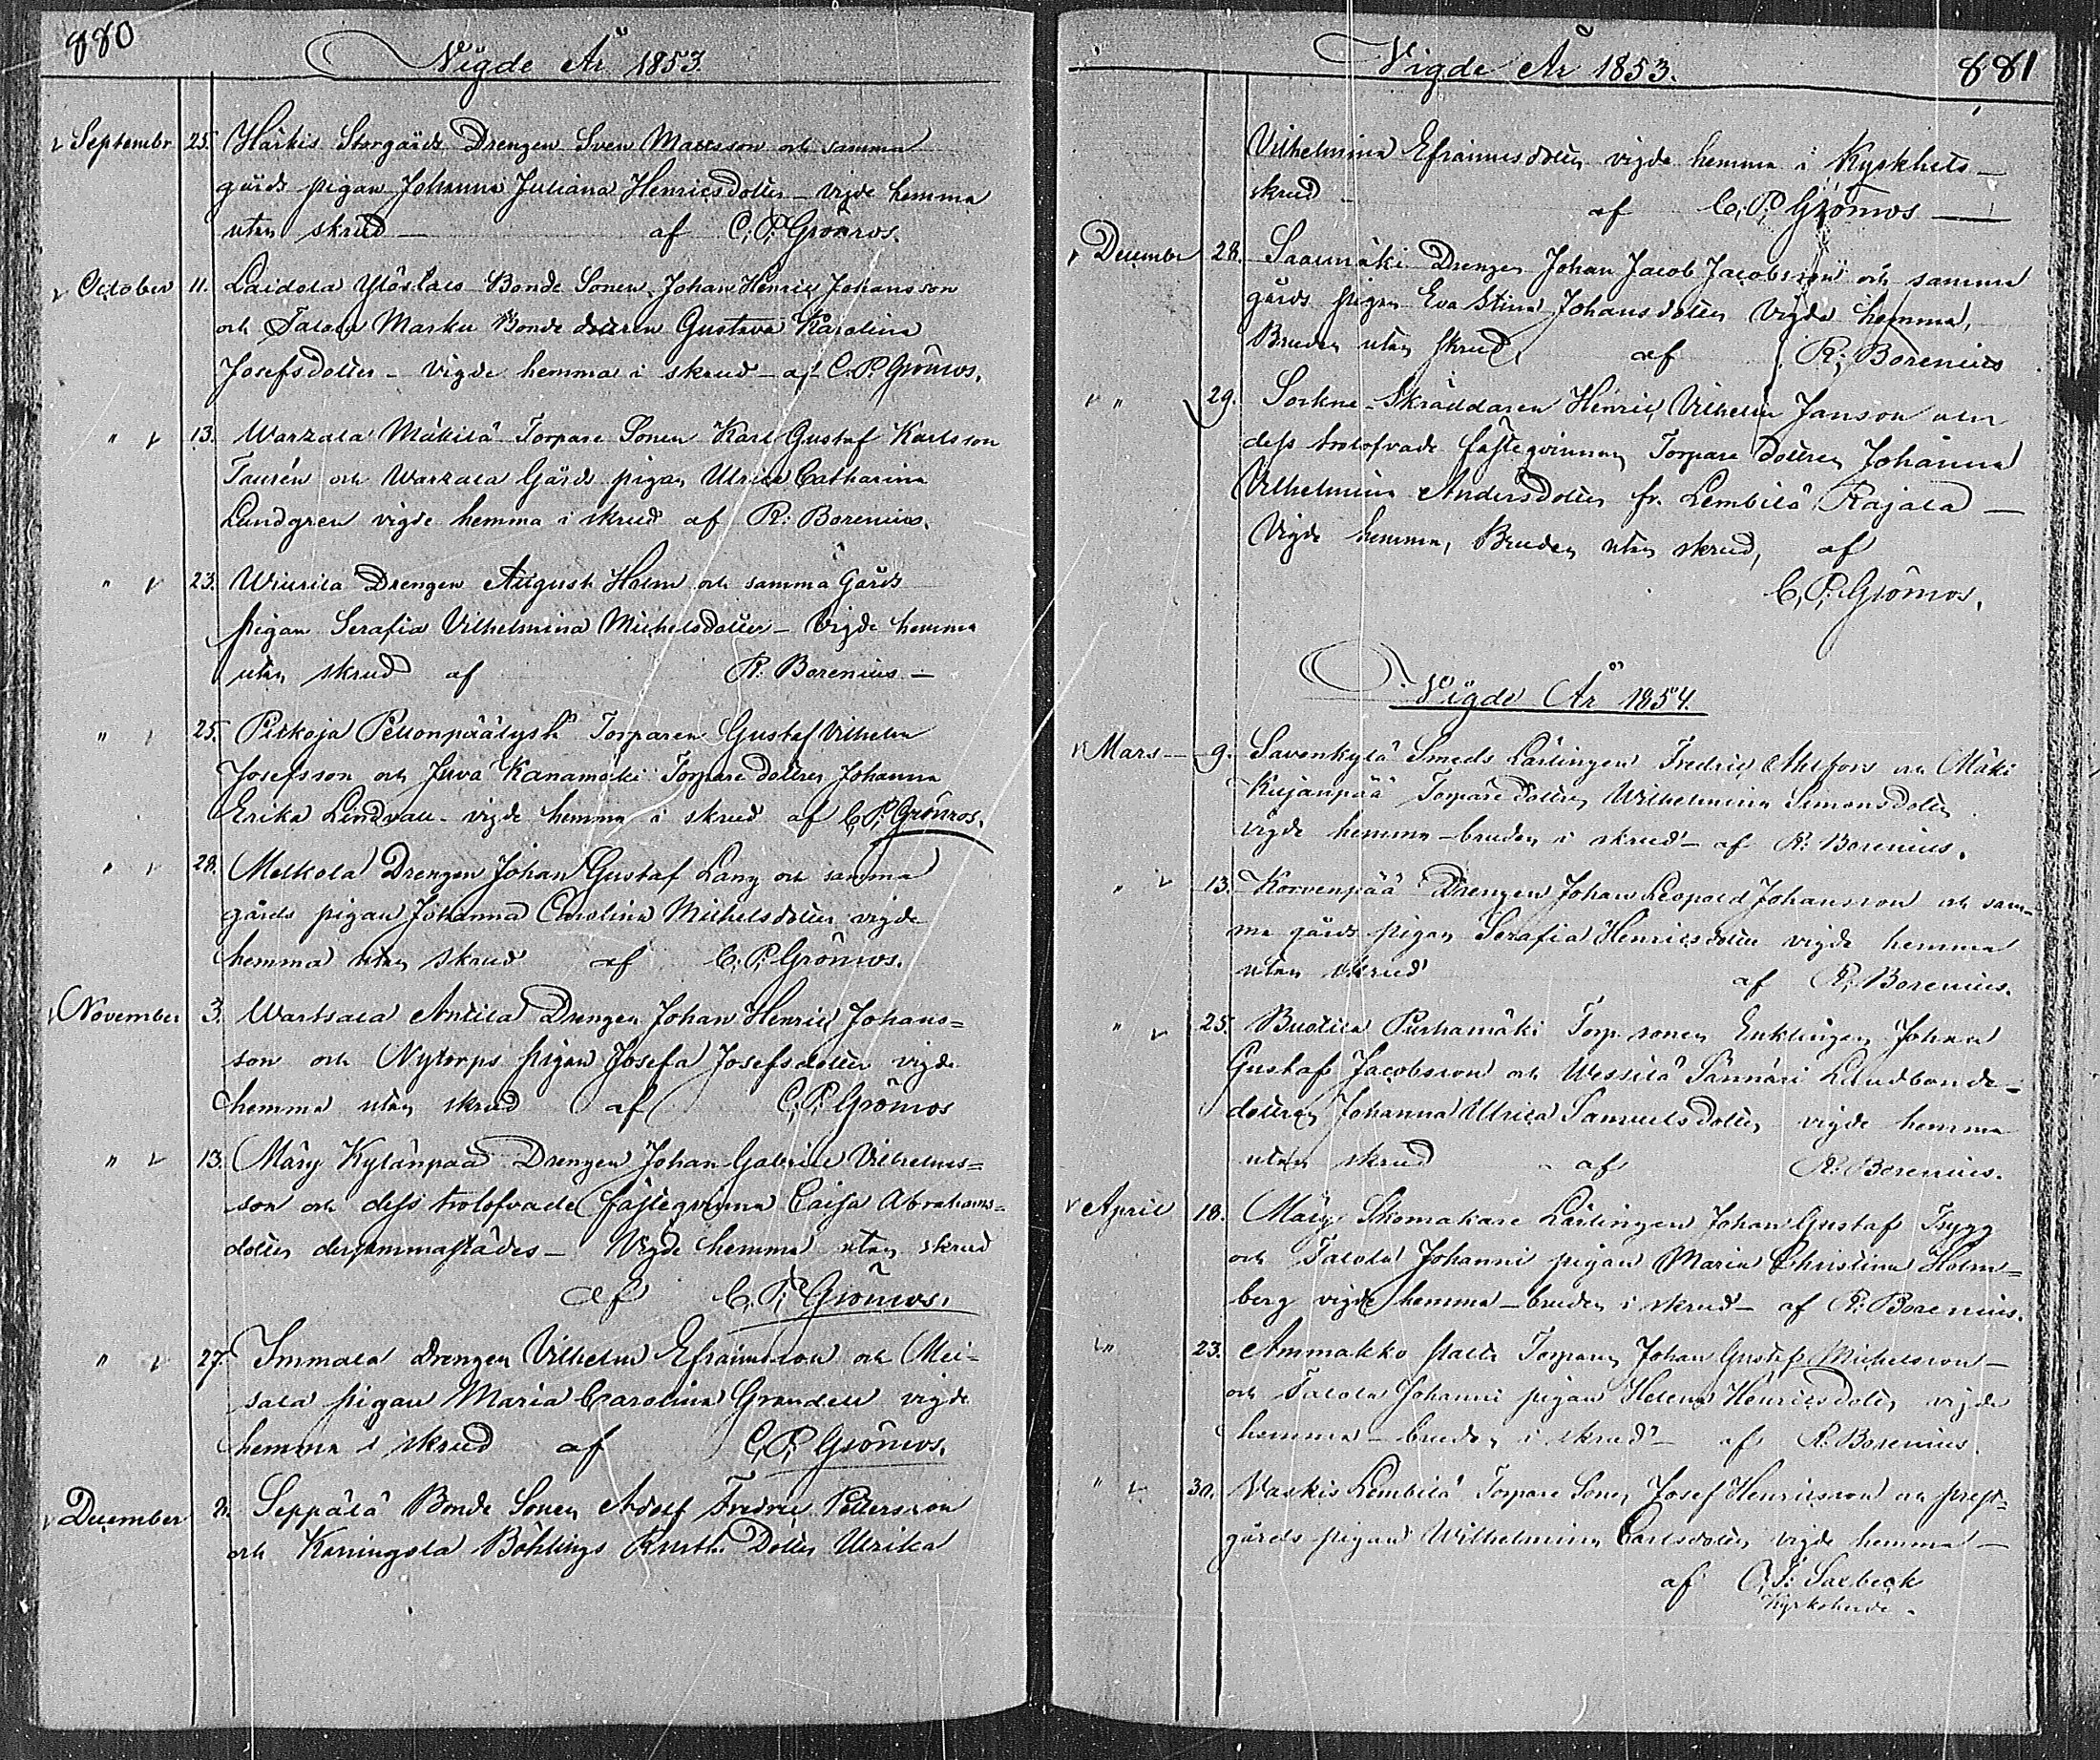 880
Vigde År 1853.
Septembr 25. Härkis Storgårds Drengen Sven Matsson och samma
gårds pigan Johanna Juliana Henricsdotter – vigde hemma
utan skrud – af C. P. Grönros.
October 11. Laidola Ylöstalo Bonde Sonen Johan Henric Johansson
och Talola Marku Bonde dottren Gustava Karolina
Josefsdotter – Vigde hemma i skrud – af C. P. Grönros.
" 13. Warzala Mäkilä Torpare Sonen Karl Gustaf Karlsson
Taurén och Warzala Gårds pigan Ulrica Catharina
Lundgren vigde hemma i skrud af R: Borenius.
" 23. Wiurila Drengen August Holm och samma Gårds
pigan Serafia Vilhelmina Michelsdotter – Vigde hemma
utan skrud af R: Borenius –
" 25. Pitkoja Pellonpäälystä Torparen Gustaf Vilhelm
Josefsson och Juva Kanamäki Torpare dottren Johanna
Erika Lindvall – vigde hemma i skrud af C. P. Grönros.
" 28. Melkola Drengen Johan Gustaf Lang och samma
gårds pigan Johanna Carolina Michelsdotter vigde
hemma utan skrud af C. P. Grönros.
November 3. Wartsala Anttila Drengen Johan Henric Johans=
son och Nytorps pigan Josefa Josefsdotter vigde
hemma utan skrud af C. P. Grönros
" 13. Märy Kylänpää Drengen Johan Gabriel Vilhelms=
son och dess trolofvade fästeqvinna Caisa Abrahams=
dotter dersammastädes – Vigde hemma utan skrud
af C. P. Grönros.
" 27. Immala Drengen Vilhelm Efraimsson och Mei=
sala pigan Maria Carolina Grandell vigde
hemma i skrud af C. P. Grönros.
December 2. Seppälä Bonde Sonen Adolf Fredric Pettersson
och Karringola Böhlings Rusth. Dotter Ulrika
Vigde År 1853. 881
Vilhelmina Efraimsdotter vigde hemma i Kyrkhets–
skrud – af C. P. Grönros –
December 28. Saarimäki Drengen Johan Jacob Jacobsson och samma
gårds pigan Eva Stina Johansdotter Vigde hemma,
Bruden utan skrud, af R: Borenius
" " 29. Sorkne-Skräddaren Henric Vilhelm Janson och
dess trolofvade fästeqvinnan Torpare dottren Johanna
Vilhelmina Andersdotter fr. Lembilä Rajala –
Vigde hemma, Bruden utan skrud, af
C. P. Grönros.
Vigde År 1854.
Mars 9. Savenkylä Smeds Lärlingen Fredric Ahlfors och Mäki
Kujanpää Torpare dottren Wilhelmina Simonsdotter
vigde hemma – bruden i skrud – af R: Borenius.
" 13. Korvenpää Drengen Johan Leopold Johansson och sam–
ma gårds pigan Serafia Henricsdotter vigde hemma
utan skrud af R: Borenius.
" 25. Buotila Purhamäki Torp. sonen Enklingen Johan
Gustaf Jacobsson och Wessilä Sännäri Landbonde=
dottren Johanna Ulrica Samuelsdotter vigde hemma
utan skrud – af R: Borenius.
April 18. Märy Skomakare Lärlingen Johan Gustaf Trygg
och Talola Johanni pigan Maria Christina Holm=
berg vigde hemma – bruden i skrud – af R: Borenius.
" 23. Ammakko Torparen Johan Gustaf Michelsson –
och Talola Johanni pigan Helena Henricsdotter vigde
hemma – bruden i skrud – af R: Borenius.
" 30. Vaskis Lembilä Torpare Sonen Josef Henricsson och prest=
gårds pigan Wilhelmina Carlsdotter vigde hemma –
af Salbeck
Kyrkoherde.